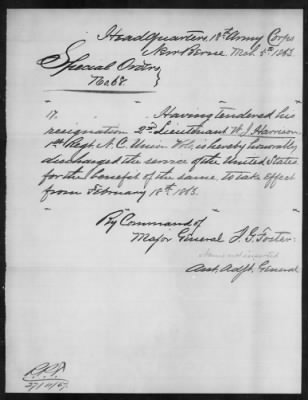 Headquarters, 18th Army Corps
New Berne, Mch. 5th 1863.
Special Orders
No 68.
17. Having tendered his
resignation 2nd Lieutenant W. J. Harrison
1st Regt N. C. Union Vols. is hereby honorably
discharged the service of the United States
for the benefit of the same, to take effect
from February 18th 1863.
By Command of
Major General J. G. Foster.
Name not inserted
Asst. Adjt. General
27/11/67